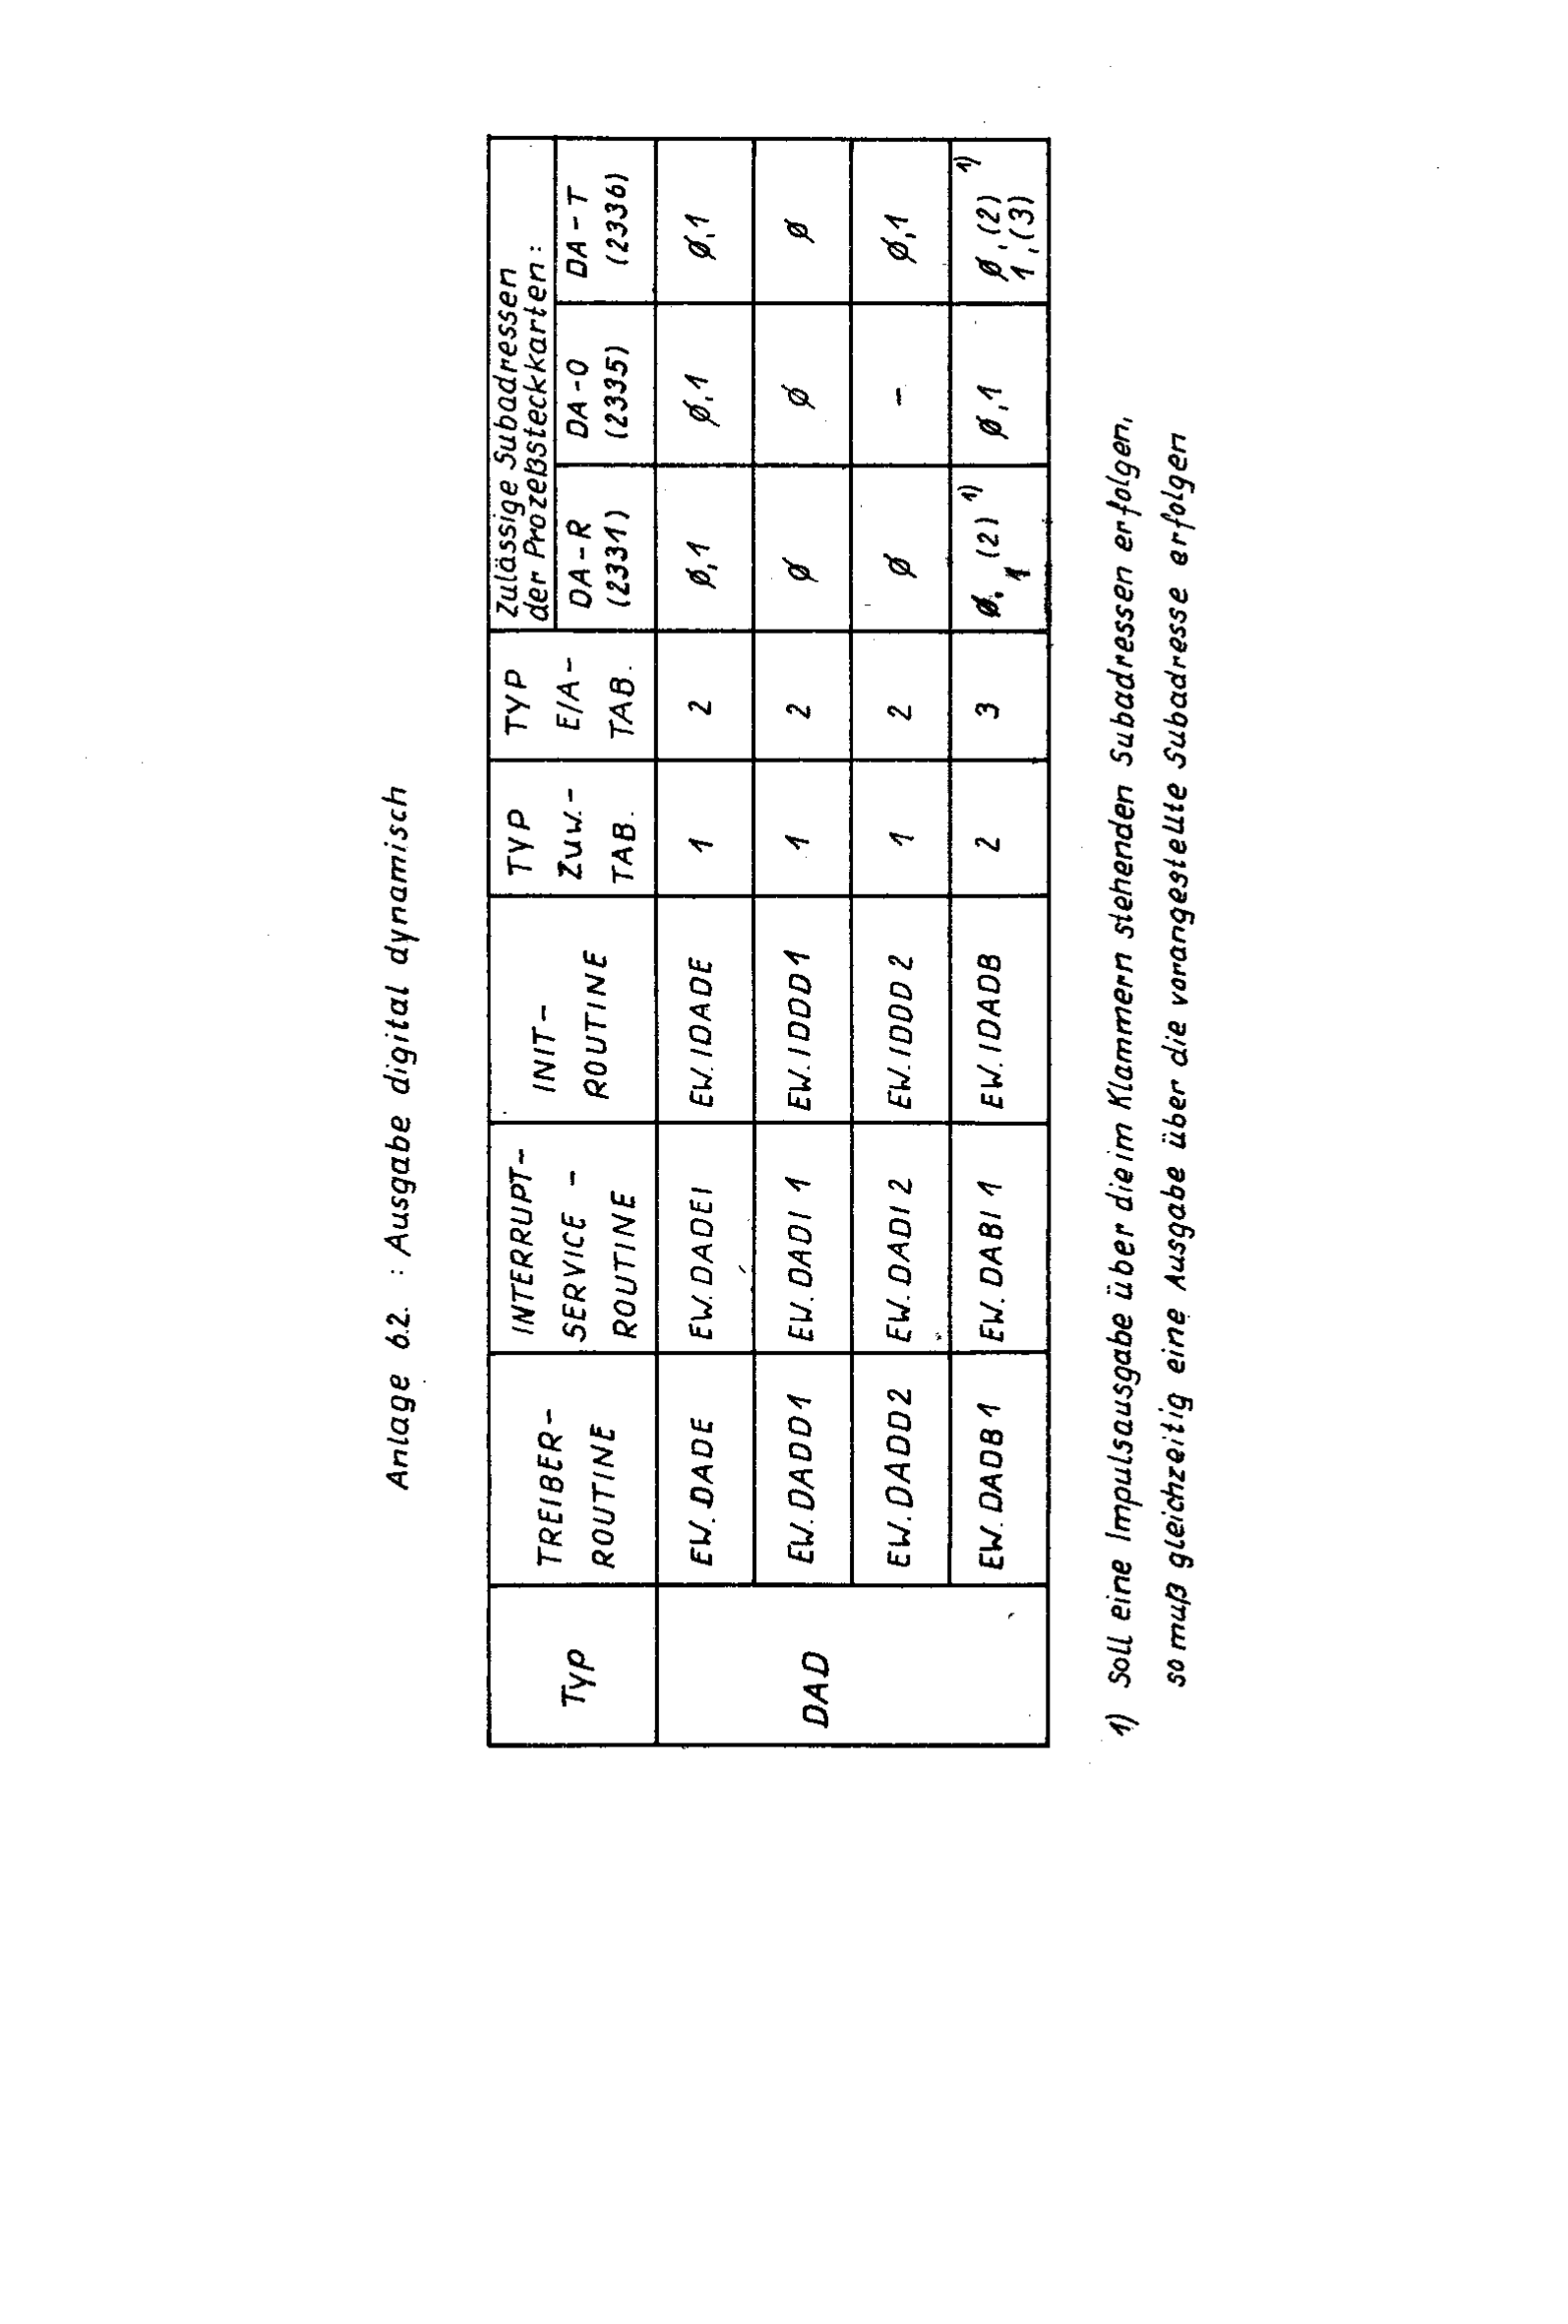 Anlage 6.2. : Ausgabe digital dynamisch
TYP
TREIBER-
ROUTINE
INTERRUPT-
SERVICE -
ROUTINE
INIT-
ROUTINE
TYP
ZUW.-
TAB.
TYP
E/A-
TAB.
Zulässige Subadressen
der Prozeßsteckkarten:
DA-R
(2331)
DA-O
(2335)
DA-T
(2336)
DAD
EW.DADE EW.DADEI EW.IDADE 1 2 Ø,1 Ø,1 Ø,1
EW.DADD1 EW.DADI1 EW.IDDD1 1 2 Ø Ø Ø
EW.DADD2 EW.DADI2 EW.IDDD2 1 2 Ø - Ø,1
EW.DADB1 EW.DABI1 EW.IDADB 2 3 Ø, (2) 1) Ø,1 Ø,(2) 1)
1 1,(3)
1) Soll eine Impulsausgabe über die im Klammern stehenden Subadressen erfolgen,
so muß gleichzeitig eine Ausgabe über die vorangestellte Subadresse erfolgen